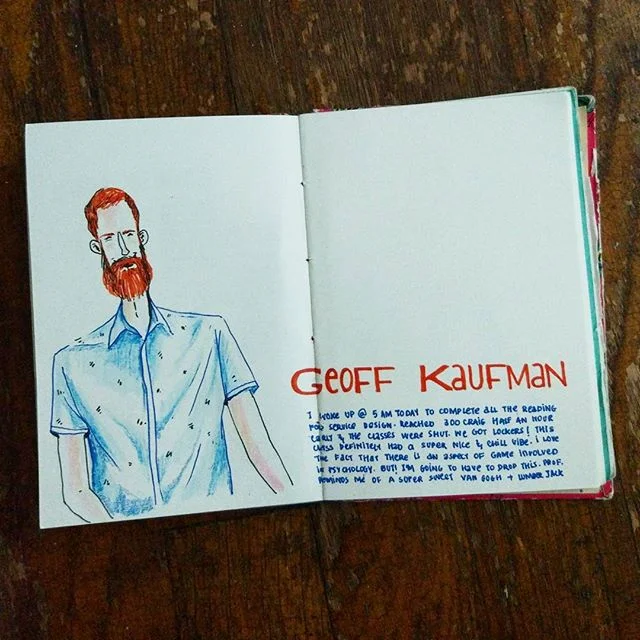 GEOFF KAUFMAN
I WOKE UP @ 5 AM TODAY TO COMPLETE ALL THE READING
FOR SERVICE DESIGN. REACHED 300 CRAIG HALF AN HOUR
EARLY & THE CLASSES WERE SHUT. WE GOT LOCKERS! THIS
CLASS DEFINITELY HAD A SUPER NICE & CHILL VIBE. I LOVE
THE FACT THAT THERE IS AN ASPECT OF GAME INVOLVED
IN PSYCHOLOGY. BUT I'M GOING TO HAVE TO DROP THIS. PROF.
REMINDS ME OF A SUPER SWEET VAN GOGH + LUMBER JACK